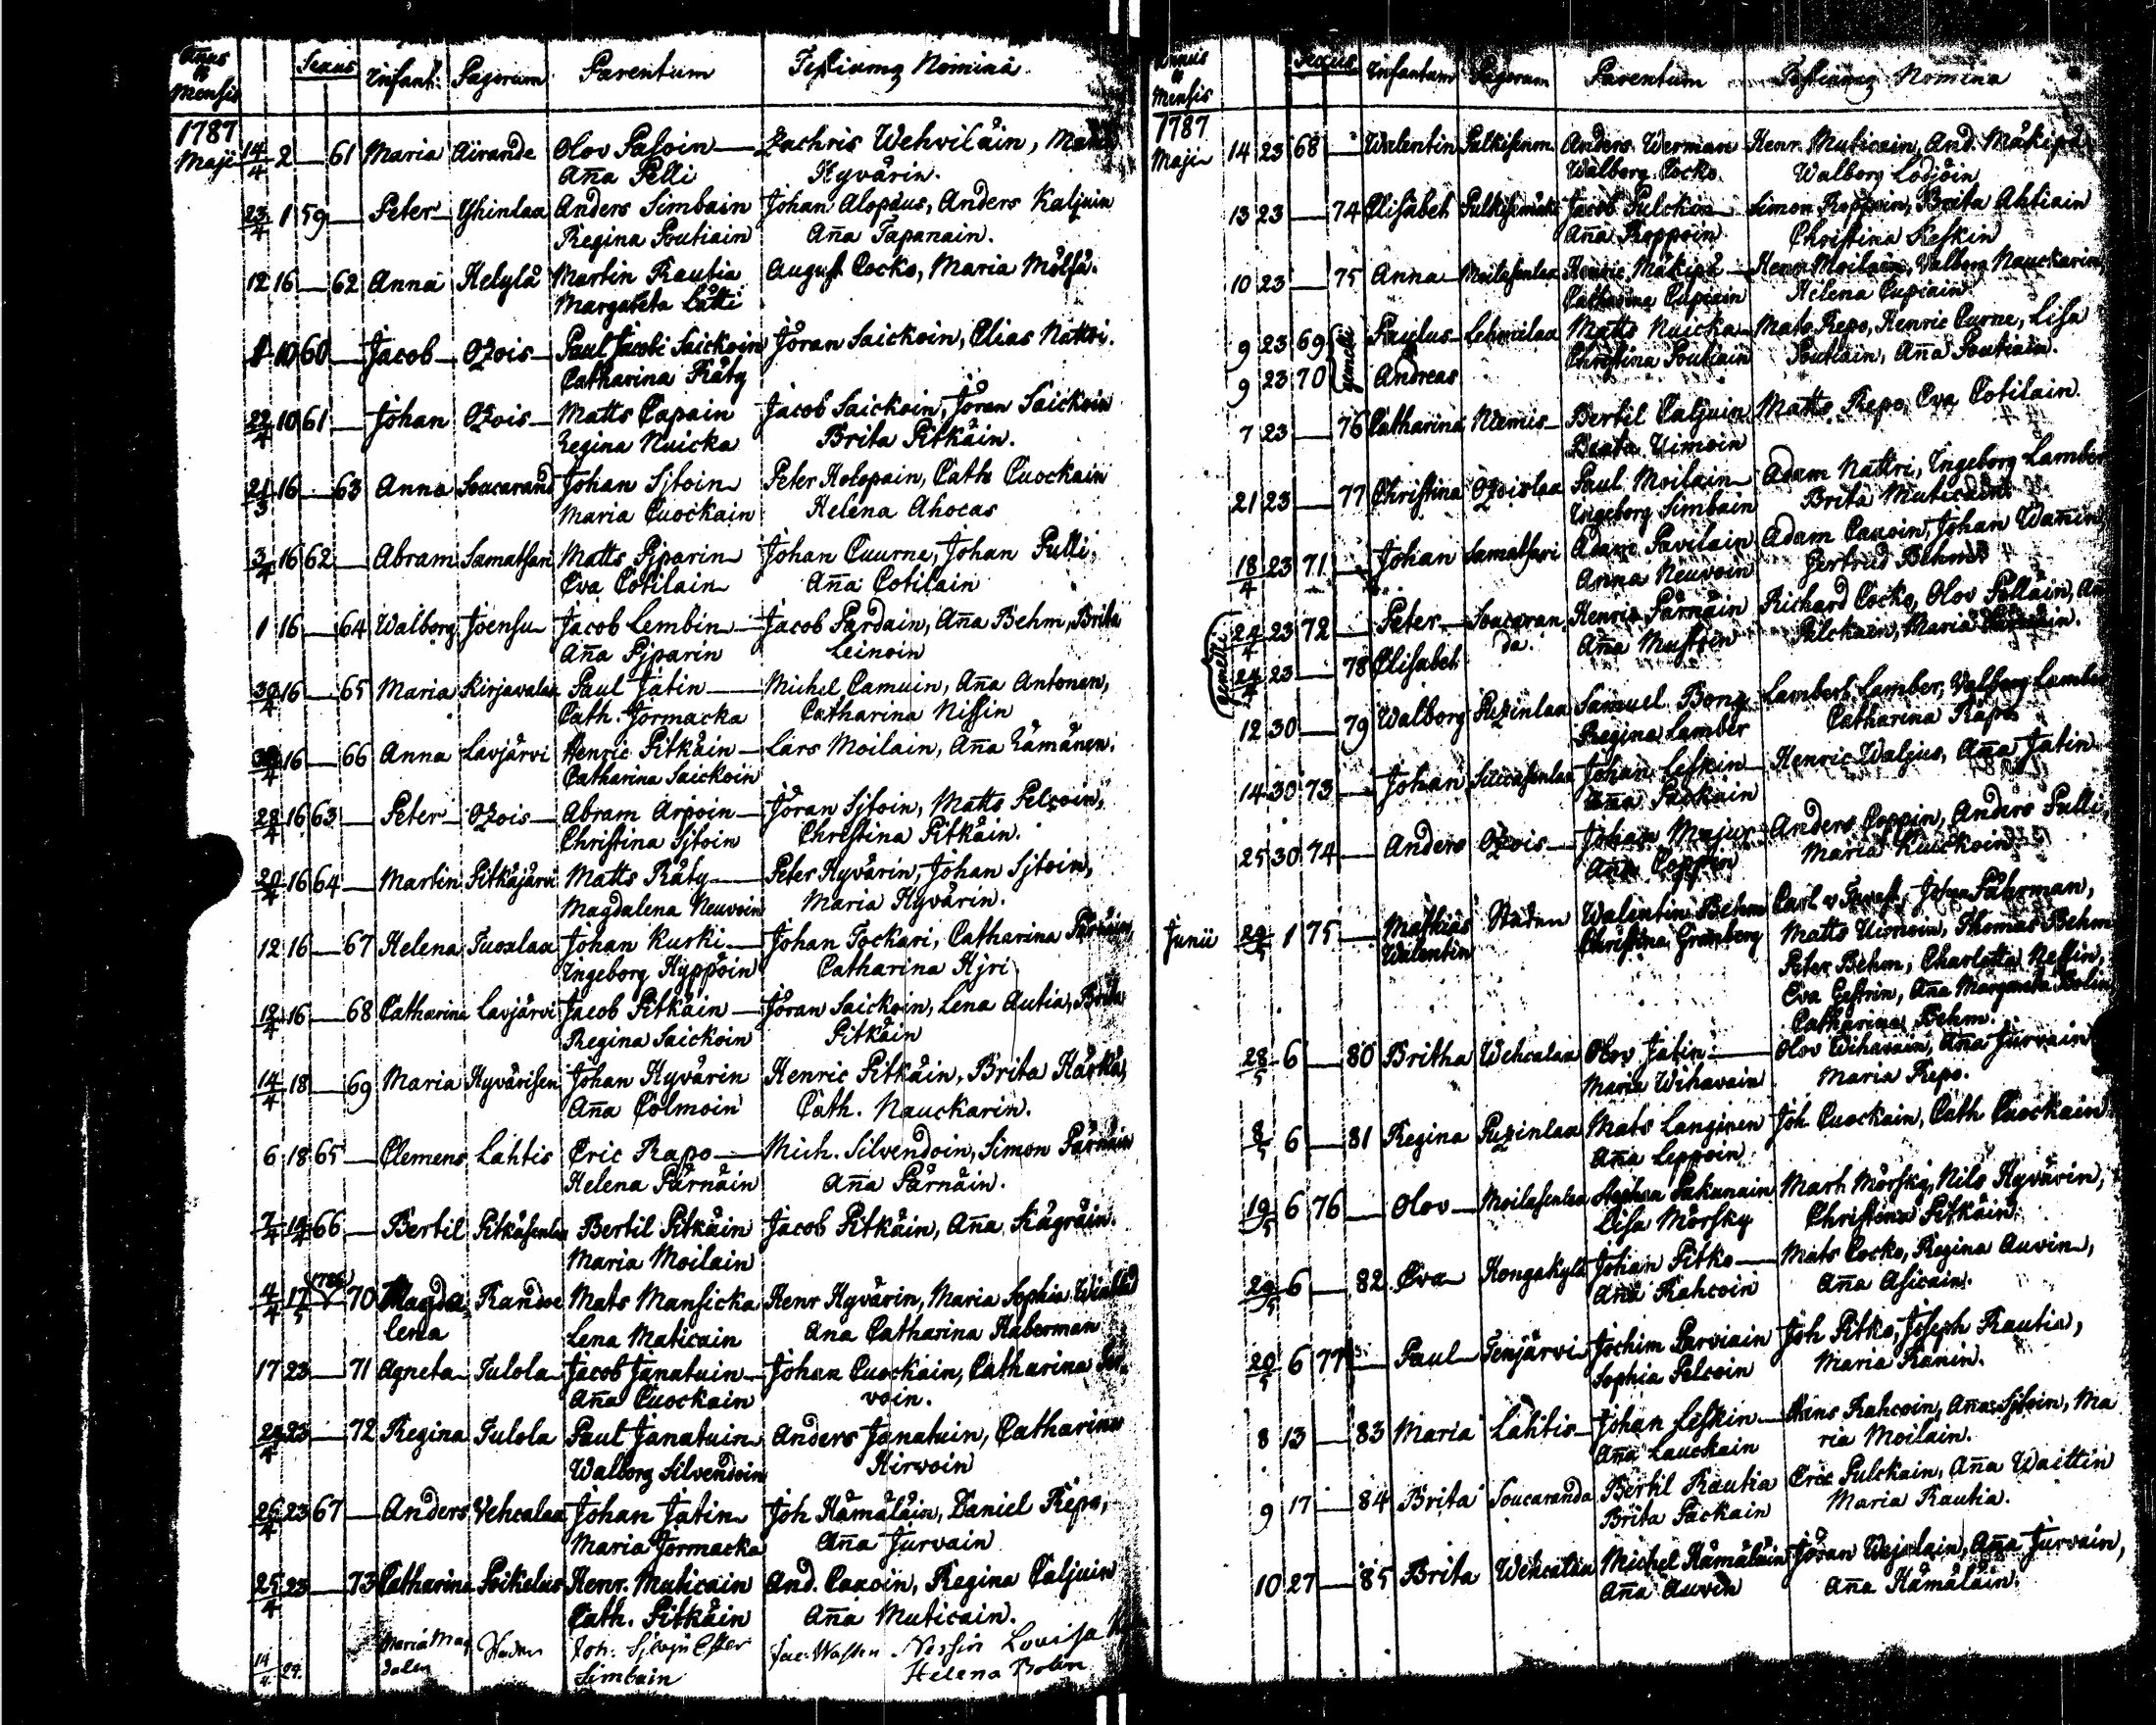 Annus & Mensis Sexus Infant: Pagorum Parentum Testiumq Nomina
1787
Maji 14/4 2 — 61 Maria Airande Olov Pasoin — Zachris Wehviläin,
Aña Pelli Hyvärin.
23/4 1 59 — Peter Yhinlaa Anders Simbain Johan Alopäus, Anders Kaljuin
Regina Poutiain Aña Tapanain.
12 16 — 62 Anna Helylä Martin Rautia August Cocko, Maria Mölsä.
Margareta Lätti
8 10 60 — Jacob Ozois Paul Jacobi Saickoin Jöran Saickoin, Elias Nättri.
Catharina Räty
22/4 10 61 — Johan Ozois Matts Papain Jacob Saickoin, Jöran Saickoin
Regina Nuicka Brita Pitkäin.
21/3 16 — 63 Anna Soucarand Johan Sjtoin Peter Holopain, Cath Cuockain
Maria Cuockain Helena Ahocas
3/4 16 62 — Abram Samatsari Matts Pjparin Johan Cuurne, Johan Pulli,
Eva Cotilain Aña Cotilain
1 16 — 64 Walborg Joensu Jacob Lembin Jacob Pardain, Aña Behm, Brita
Aña Pjparin Leinoin
30/4 16 — 65 Maria Kirjavalaa Paul Jatin Michel Camuin, Aña Antonen,
Cath. Jormacka Catharina Nissin
30/4 16 — 66 Anna Lavjärvi Henric Pitkäin Lars Moilain, Aña Zämänen.
Catharina Saickoin
28/4 16 63 — Peter Ozois Abram Arpoin Jöran Sjtoin, Matts Pelcoin,
Christina Sjtoin Christina Pitkäin.
20/4 16 64 — Martin Pitkäjärvi Matts Räty Peter Hyvärin, Johan Sjtoin,
Magdalena Neuvoin Maria Hyvärin.
12 16 — 67 Helena Tuoxlaa Johan Kurki Johan Tockari, Catharina Pärnäin,
Ingeborg Hyppöin Catharina Hjri
12/4 16 — 68 Catharina Lavjärvi Jacob Pitkäin Jöran Saickoin, Lena Autia, Brita
Regina Saickoin Pitkäin
14/4 18 — 69 Maria Hyvärisen Johan Hyvärin Henric Pitkäin, Brita Härkä,
Aña Colmoin Cath. Nauckarin.
6 18 65 — Clemens Lahtis Eric Rapo Mich. Silvendoin, Simon Pärnäin
Helena Pärnäin Aña Pärnäin.
7/4 19/4 66 — Bertil Pitkäsenlaa Bertil Pitkäin Jacob Pitkäin, Aña Kägräin.
Maria Moilain
4/4 17/5 1786 70 Magda Randoe Mats Mansicka Henr Hyvärin, Maria Sophia
lena Lena Maticain Ana Catharina Haberman
17 23 — 71 Agneta Tulola Jacob Janatuin Johan Cuockain, Catharina
Aña Cuockain voin.
24/4 23 — 72 Regina Tulola Paul Janatuin Anders Janatuin, Catharina
Walborg Silvendoin Hirvoin
26/4 23 67 — Anders Vehcalaa Johan Jatin Joh Hämäläin, Daniel Repo,
Maria Jormacka Aña Jurvain
25/4 23 — 73 Catharina Poikelus Henr. Muticain And. Caxoin, Regina Caljuin
Cath. Pitkäin Aña Muticain.
14/4 29. Maria Mag Staden Joh. Ester Jac. Louisa
dalen Simbain Helena Bolin
Annus & Mensis Sexus Infantum Pagorum Parentum Testiumq Nomina
1787
Maji 14 23 68 — Walentin Pulkisenm Anders Werman Henr. Muticain, And. Mäkipä
Walborg Cocko Walborg Lodjöin
13 23 — 74 Elisabeh Pulkismäki Jacob Pulckin Simon Roppoin, Brita Ahtiain
Aña Roppoin Christina Leskin
10 23 — 75 Anna Moilasenlaa Henric Mäkipä Henr Moilain, Valborg Nauckarin,
Catharina Cupiain Helena Cupiain
9 23 69 Gemelli Paulus Lehmalaa Matts Nuicka Mats Repo, Henric Curne, Lisa
Christina Poutiain Poutiain, Aña Poutiain.
9 23 70 Andreas
7 23 — 76 Catharina Niemis Bertil Caljuin Matts Repo, Eva Cotilain.
Beata Uimoin
21 23 — 77 Christina Ozoislaa Paul Moilain Adam Nättri, Ingeborg Lamber
Ingeborg Simbain Brita Muticain
18/4 23 71 — Johan Samatsari Adam Pavilain Adam Caxoin, Johan Wanin,
Anna Neuvoin Gertrud Behm
Gemelli 24/4 23 72 — Peter Soucaran Henric Pärnäin Richard Cocko, Olov Pölläin,
da. Aña Mustoin Pulckain, Maria
24/4 23 — 78 Elisabet
12 30 — 79 Walborg Puzinlaa Samuel Bong Lambert Lamber, Walborg Lamber
Regina Lamber Catharina Räpo
14 30 73 — Johan Sucasenlaa Johan Leskin Henric Waljus, Aña Jatin
Aña Packain
25 30 74 — Anders Ozois Johan Majur Anders Coppin, Anders Pulli,
Aña Coppin Maria Ruickoin
Junii 29/5 1 75 — Mathias Staden Walentin Behm Carl v Johan Fährman,
Walentin Christina Granberg Matts Uimoin, Thomas Behm
Peter Behm, Charlotta Neslin,
Eva Gestrin, Aña Margareta Bolin
Catharina Behm.
28/5 6 — 80 Britha Wehcalaa Olov Jatin Olov Wihavain, Aña Jurvain
Maria Wihavain Maria Repo.
8/5 6 — 81 Regina Puzinlaa Mats Langinen Joh. Cuockain, Cath Cuockain
Aña Leppoin
19/5 6 76 — Olov Moilasenlaa Stephan Pakunain Mart Mörsky, Nils Hyvärin,
Lisa Mörsky Christina Pitkäin
29/5 6 — 82 Eva Hongakylä Johan Pitko Mats Cocko, Regina Auvin,
Aña Rahcoin Aña Asicain.
20/5 6 77 — Paul Tenjärvi Jochim Parviain Joh Pitko, Joseph Rautia,
Sophia Pelcoin Maria Ranin.
8 13 — 83 Maria Lahtis Johan Leskin Hins Rahcoin, Aña Sjtoin, Ma
Aña Lauckain ria Moilain.
9 17 — 84 Brita Soucaranda Bertil Rautia Eric Pulckain, Aña Waittin
Brita Packain Maria Rautia.
10 27 — 85 Brita Wehcalaa Michel Hämäläin Jöran Wejalain, Aña Jurvain,
Aña Auvin Aña Hämäläin.